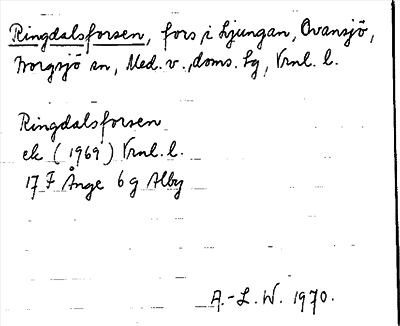 Ringdalsforsen, fors i Ljungan, Ovansjö,
Borgsjö sn, Med. v., doms. lg, Vrnl. l.
Ringdalsforsen
ek (1969) Vrnl. l.
17 F Ånge 6 g Alby
A.-L. W. 1970.